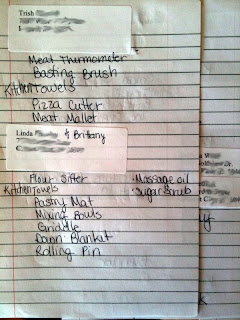 Trish
Meat Thermometer
Basting Brush
Kitchen Towels
Pizza Cutter
Meat Mallet
Linda & Brittany
Flour Sifter
Kitchen Towels
Pastry Mat
Mixing Bowls
Griddle
Down Blanket
Rolling Pin
• Massage oil
• Sugar Scrub
Dr.